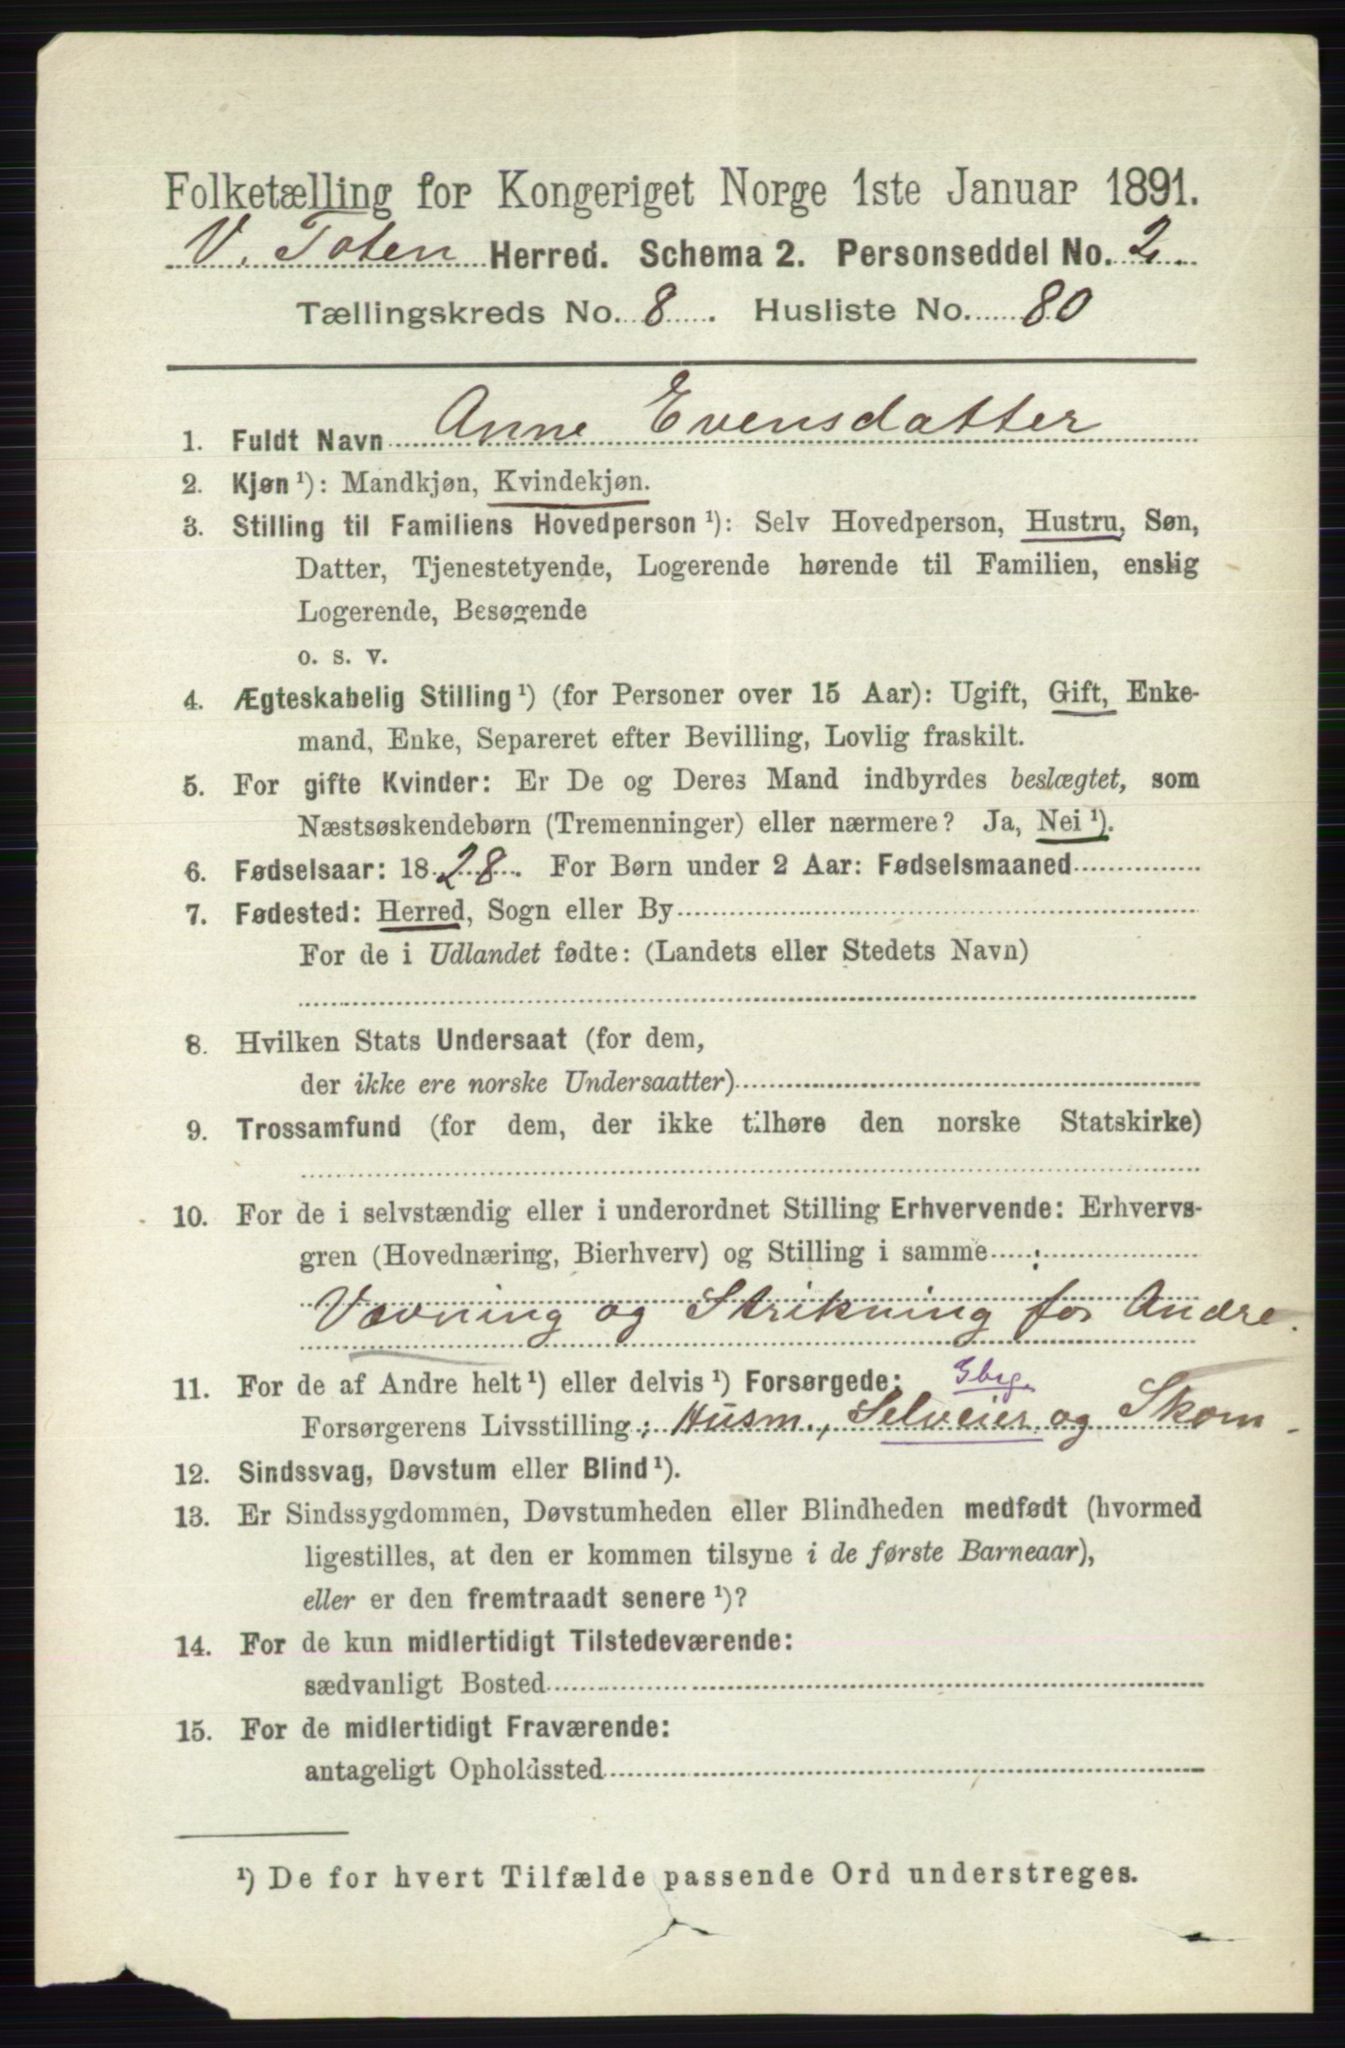 Folketælling for Kongeriget Norge 1ste Januar 1891.
V. Toten Herred. Schema 2. Personseddel No. 2.
Tællingskreds No. 8. Husliste No. 80
1. Fuldt Navn Anne Evensdatter
2. Kjøn ¹): Mandkjøn, Kvindekjøn.
3. Stilling til Familiens Hovedperson ¹): Selv Hovedperson, Hustru, Søn,
Datter, Tjenestetyende, Logerende hørende til Familien, enslig
Logerende, Besøgende
o. s. v.
4. Ægteskabelig Stilling ¹) (for Personer over 15 Aar): Ugift, Gift, Enke-
mand, Enke, Separeret efter Bevilling, Lovlig fraskilt.
5. For gifte Kvinder: Er De og Deres Mand indbyrdes beslægtet, som
Næstsøskendebørn (Tremenninger) eller nærmere? Ja, Nei ¹).
6. Fødselsaar: 1828. For Børn under 2 Aar: Fødselsmaaned
7. Fødested: Herred, Sogn eller By
For de i Udlandet fødte: (Landets eller Stedets Navn)
8. Hvilken Stats Undersaat (for dem,
der ikke ere norske Undersaatter)
9. Trossamfund (for dem, der ikke tilhøre den norske Statskirke)
10. For de i selvstændig eller i underordnet Stilling Erhvervende: Erhvervs-
gren (Hovednæring, Bierhverv) og Stilling i samme :
Vævning og Strikning for Andre.
11. For de af Andre helt ¹) eller delvis ¹) Forsørgede:
Forsørgerens Livsstilling; Husm., Selveier og Skom.
12. Sindssvag, Døvstum eller Blind ¹).
13. Er Sindssygdommen, Døvstumheden eller Blindheden medfødt (hvormed
ligestilles, at den er kommen tilsyne i de første Barneaar),
eller er den fremtraadt senere ¹)?
14. For de kun midlertidigt Tilstedeværende:
sædvanligt Bosted
15. For de midlertidigt Fraværende:
antageligt Opholdssted
¹) De for hvert Tilfælde passende Ord understreges.